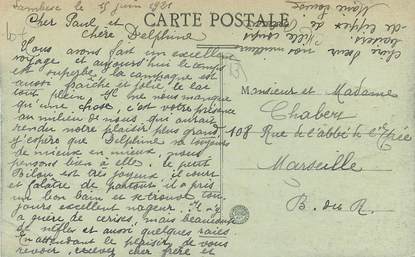 Lambesc le 5 juin 1921
CARTE POSTALE
Cher Paul et
Chère Delphine
Nous avons fait un excellent
voyage et aujourd'hui le temps
est superbe la campagne est
aussi fraîche et jolie, le lac
tout plein. Il ne nous manque
qu'une chose, c'est votre présence
au milieu de nous, qui aurait
rendu notre plaisir plus grand
J'espère que Delphine va toujours
de mieux en mieux, nous
pensons bien à elle. le petit
est très joyeux, il court
et folâtre de partout il a pris
un bon bain et se trouve tou-
jours excellent nageur. Il y
a guère de cerises, mais beaucoup
de nèfles et aussi quelques raies
En attendant le plaisir de vous
revoir, recevez cher frère et
chère sœur nos meilleurs
baisers
Marie Louise
Monsieur et Madame
Chabert
108 Rue de l'abbé de l'Epée
Marseille
B. du R.